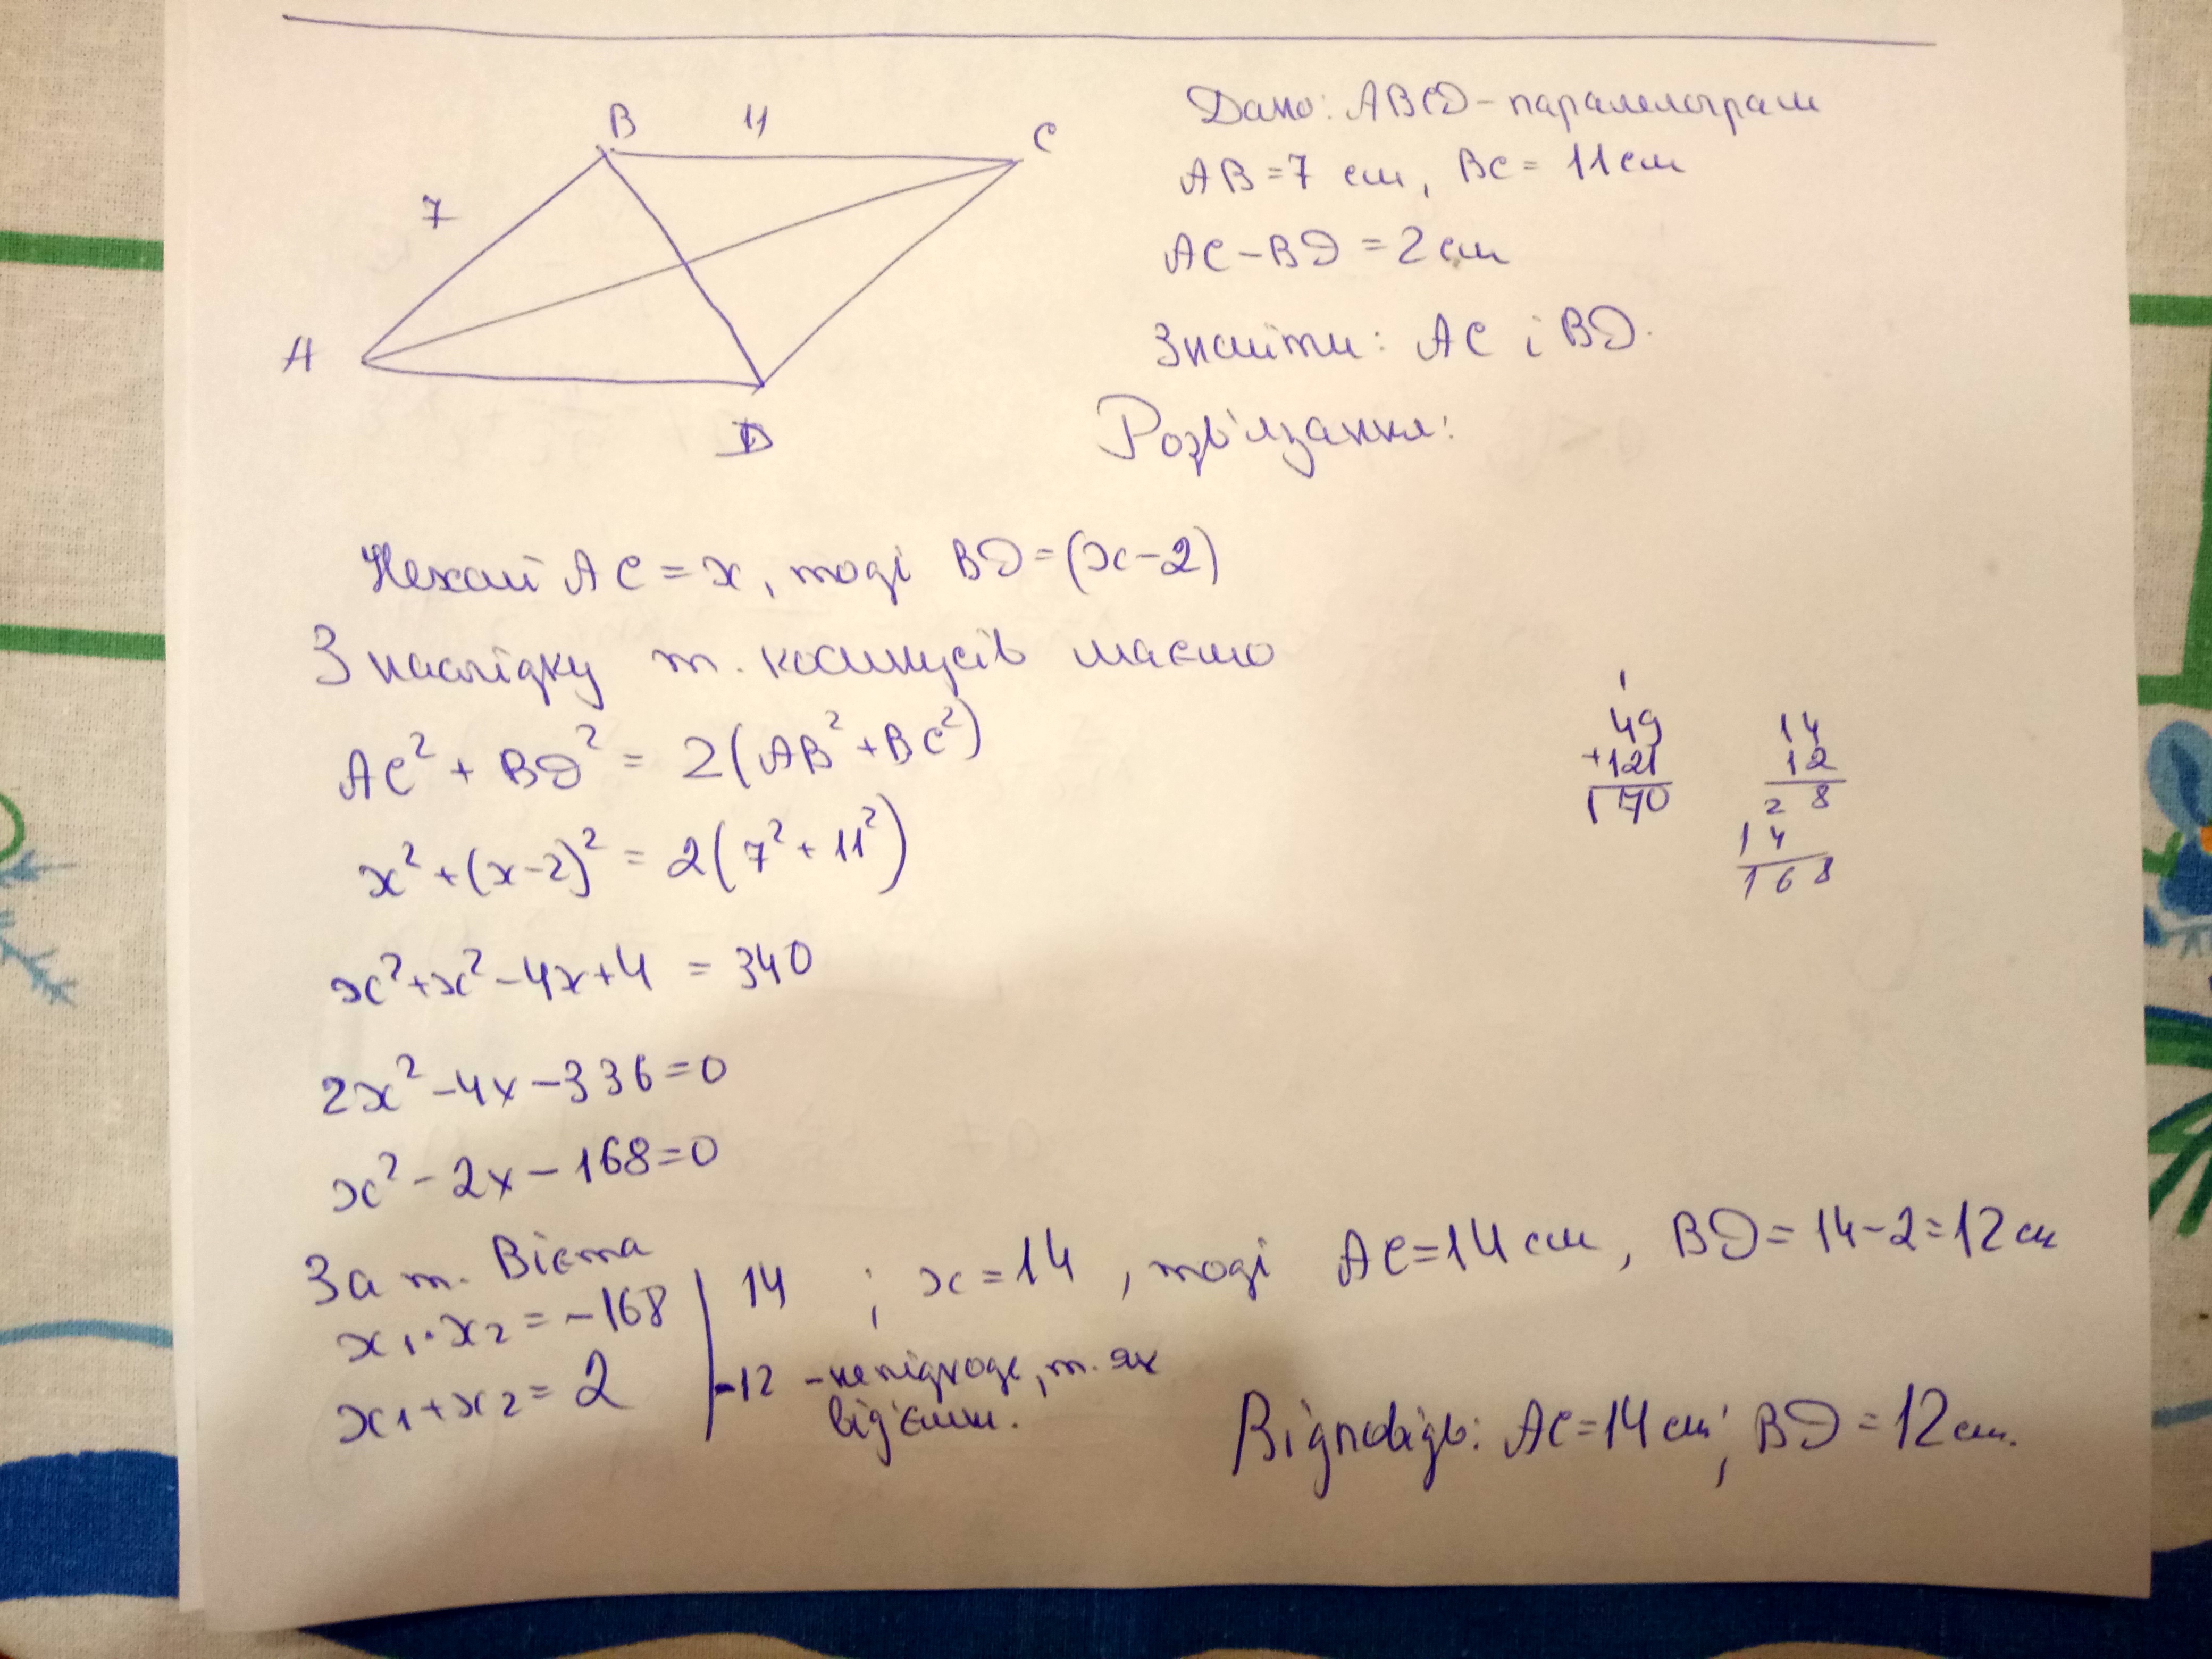 B 11 C
7
A
D
Дано: ABCD - паралелограм
AB = 7 см, BC = 11 см
AC - BD = 2 см
Знайти: AC і BD.
Розв'язання:
Нехай AC = x, тоді BD = (x-2)
З наслідку т. косинусів маємо
AC² + BD² = 2(AB² + BC²)
x² + (x-2)² = 2(7² + 11²)
x² + x² - 4x + 4 = 340
2x² - 4x - 336 = 0
x² - 2x - 168 = 0
1
49
+121
170
14
12
28
14
168
За т. Вієта
x₁·x₂ = -168 | 14 ; x = 14, тоді AC = 14 см, BD = 14-2 = 12 см
x₁+x₂ = 2 | -12 - не підходе, т. як
від'ємн.
Відповідь: AC = 14 см; BD = 12 см.